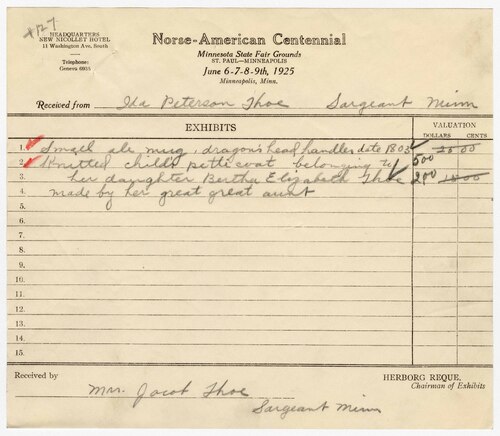 #127
HEADQUARTERS
NEW NICOLLET HOTEL
11 Washington Ave. South
Telephone:
Geneva 6935
Norse-American Centennial
Minnesota State Fair Grounds
ST. PAUL—MINNEAPOLIS
June 6-7-8-9th, 1925
Minneapolis, Minn.
Received from Ida Peterson Thoe Sargeant Minn
EXHIBITS
VALUATION
DOLLARS CENTS
1. Small ale mug, dragon's head handles date 1803 25 00
2. Knitted child's petticoat belonging to 500
3. her daughter Bertha Elizabeth Thoe 200 15 00
4. made by her great great aunt
5.
6.
7.
8.
9.
10.
11.
12.
13.
14.
15.
Received by
HERBORG REQUE,
Chairman of Exhibits
Mrs. Jacob Thoe
Sargeant Minn